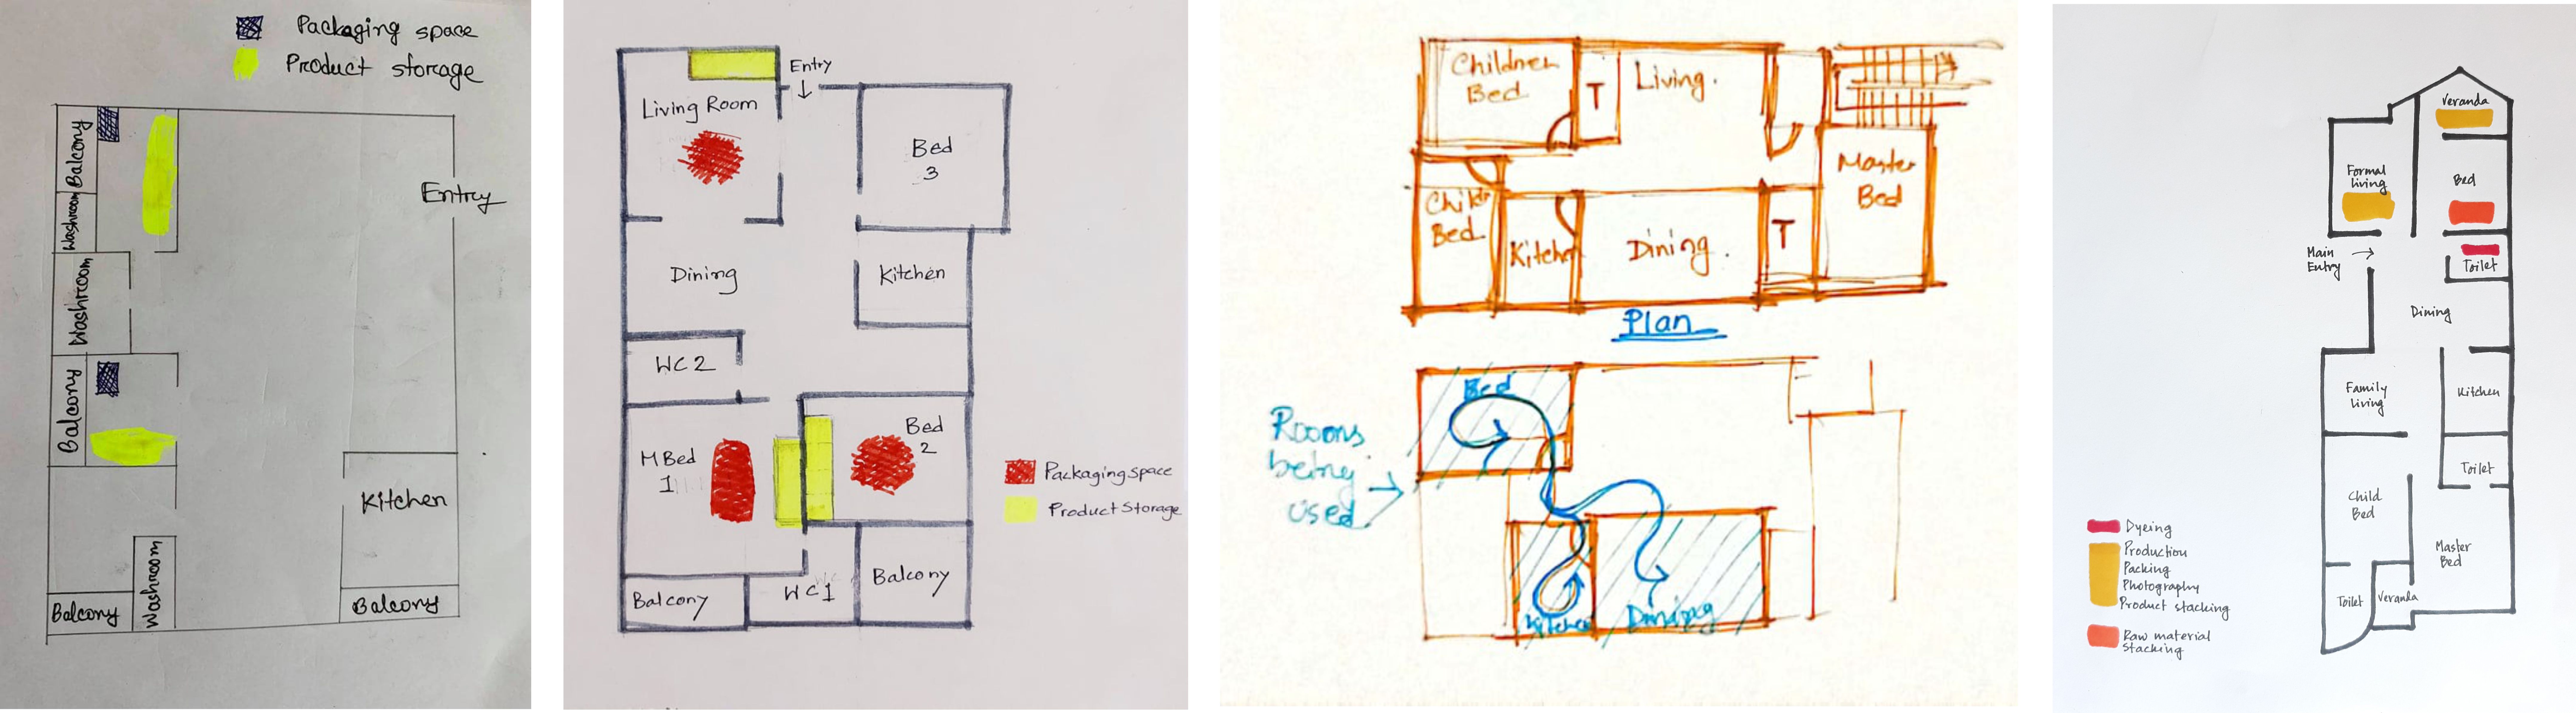 Packaging space
Product storage
Balcony
Washroom
Entry
Washroom
Balcony
Kitchen
Washroom
Balcony
Balcony
Entry
Living Room
Bed
3
Dining
Kitchen
WC2
Bed
2
M Bed
1
Packaging space
Product Storage
WC1
Balcony
Balcony
Children
Bed
T
Living.
Master
Bed
Child
Bed
Kitchen
Dining.
T
Plan
Bed
Rooms
being
used
Kitchen
Dining
Veranda
Formal
living
Bed
Main
Entry
Toilet
Dining
Family
living
Kitchen
Toilet
Child
Bed
Master
Bed
Toilet
Veranda
Dyeing
Production
Packing
Photography
Product stacking
Raw material
stacking